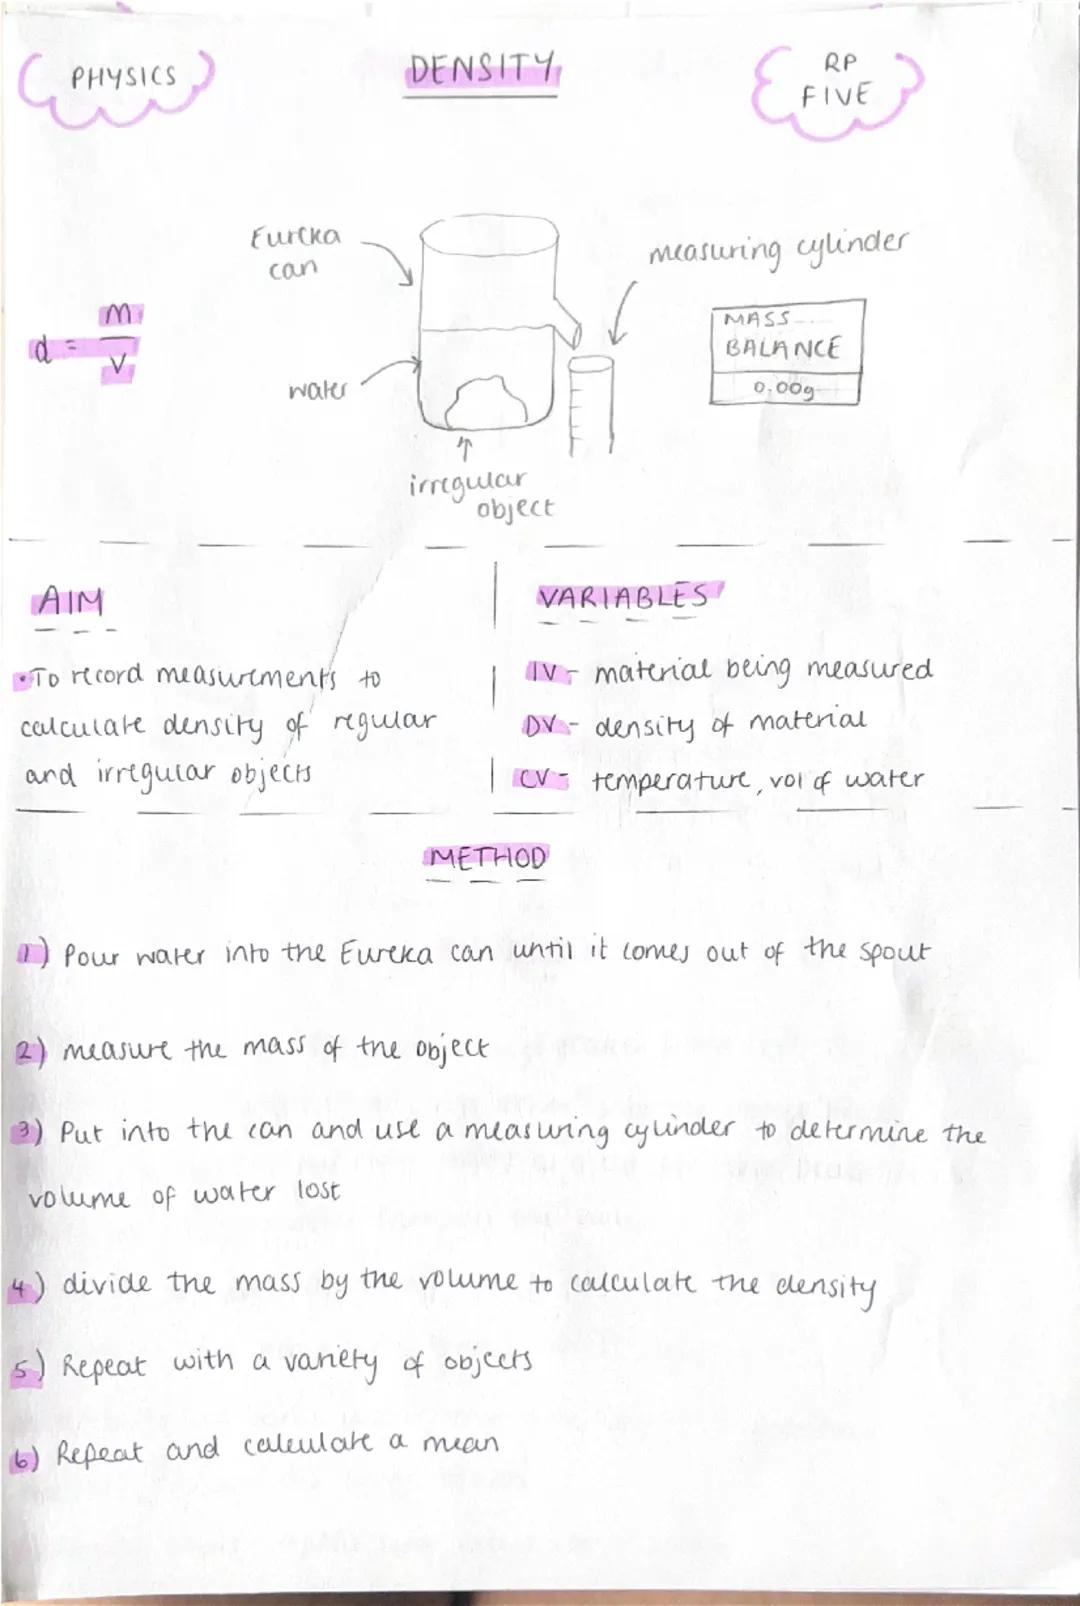 PHYSICS
DENSITY
RP
FIVE
Eureka
can
measuring cylinder
d = m
v
MASS
BALANCE
0.00g
water
irregular
object
AIM
VARIABLES
•To record measurements to
calculate density of regular
and irregular objects
IV - material being measured
DV - density of material
CV - temperature, vol of water
METHOD
1) Pour water into the Eureka can until it comes out of the spout
2) measure the mass of the object
3) Put into the can and use a measuring cylinder to determine the
volume of water lost
4) divide the mass by the volume to calculate the density
5) Repeat with a variety of objects
6) Repeat and calculate a mean